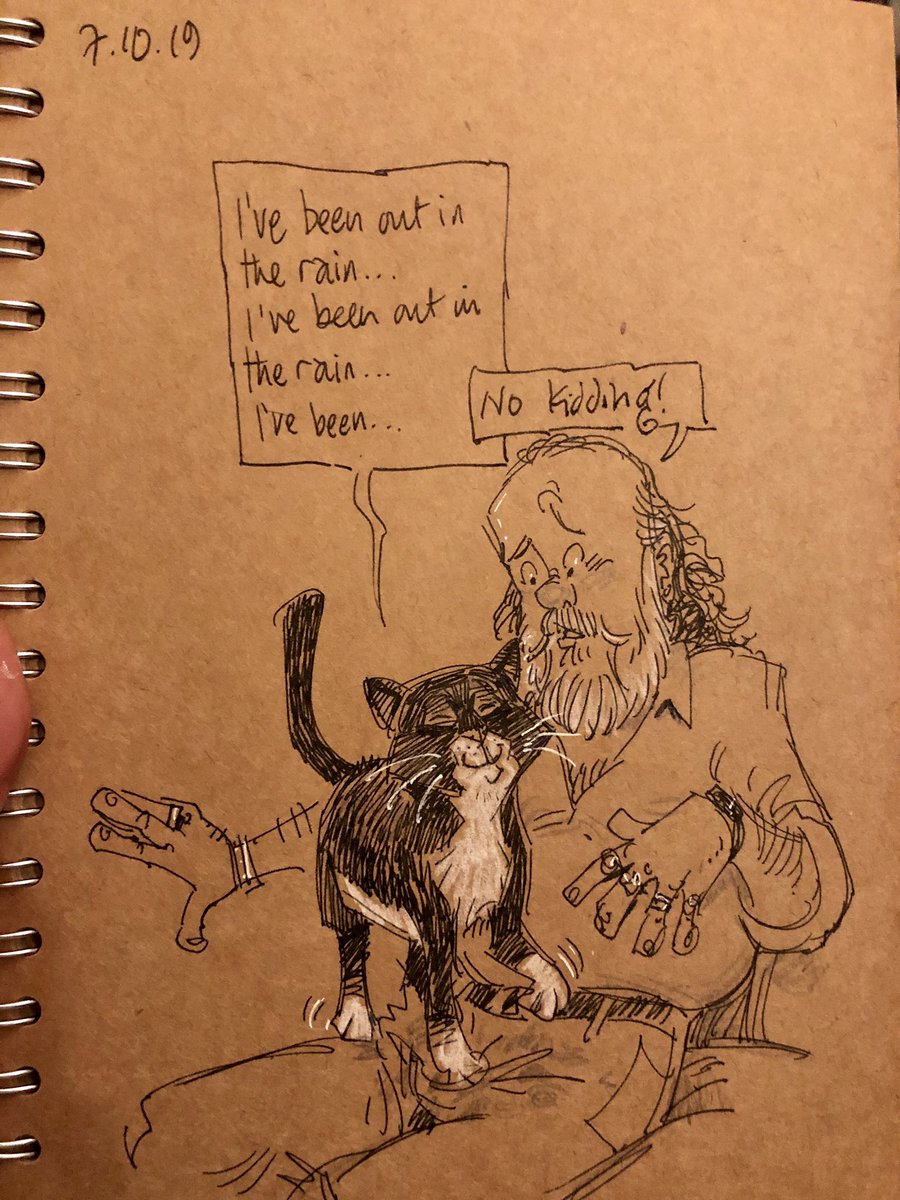 7.10.19
I've been out in
the rain...
I've been out in
the rain...
I've been...
No kidding!